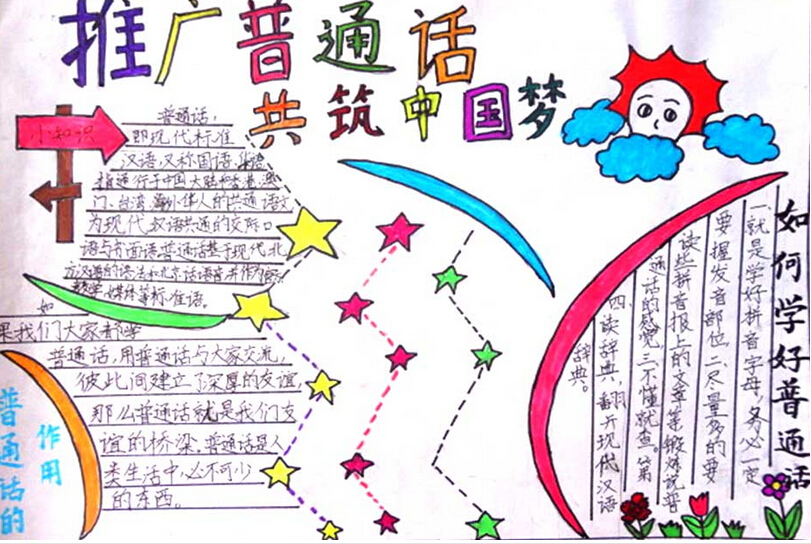 推广普通话
共筑中国梦
小知识
普通话，
即现代标准
汉语又称国语、华语
指通行于中国大陆和香港、澳
门、台湾、海外华人的共通语文
为现代汉语共通的交际口
语与书面语普通话基于现代北
方汉语的语法和北京话语音并作为教
教学、媒体等标准语。
如
果我们大家都学
普通话，用普通话与大家交流，
彼此间建立了深厚的友谊
那么普通话就是我们友
谊的桥梁。普通话是人
类生活中必不可少
的东西。
普通话的
作用
如何学好普通话
一就是学好拼音字母，务必一定
要握发音部位 二尽量多的要
读些拼音报上的文章等锻炼说普
通话的感觉 三不懂就查。第
四、读辞典，翻开现代汉语
辞典。